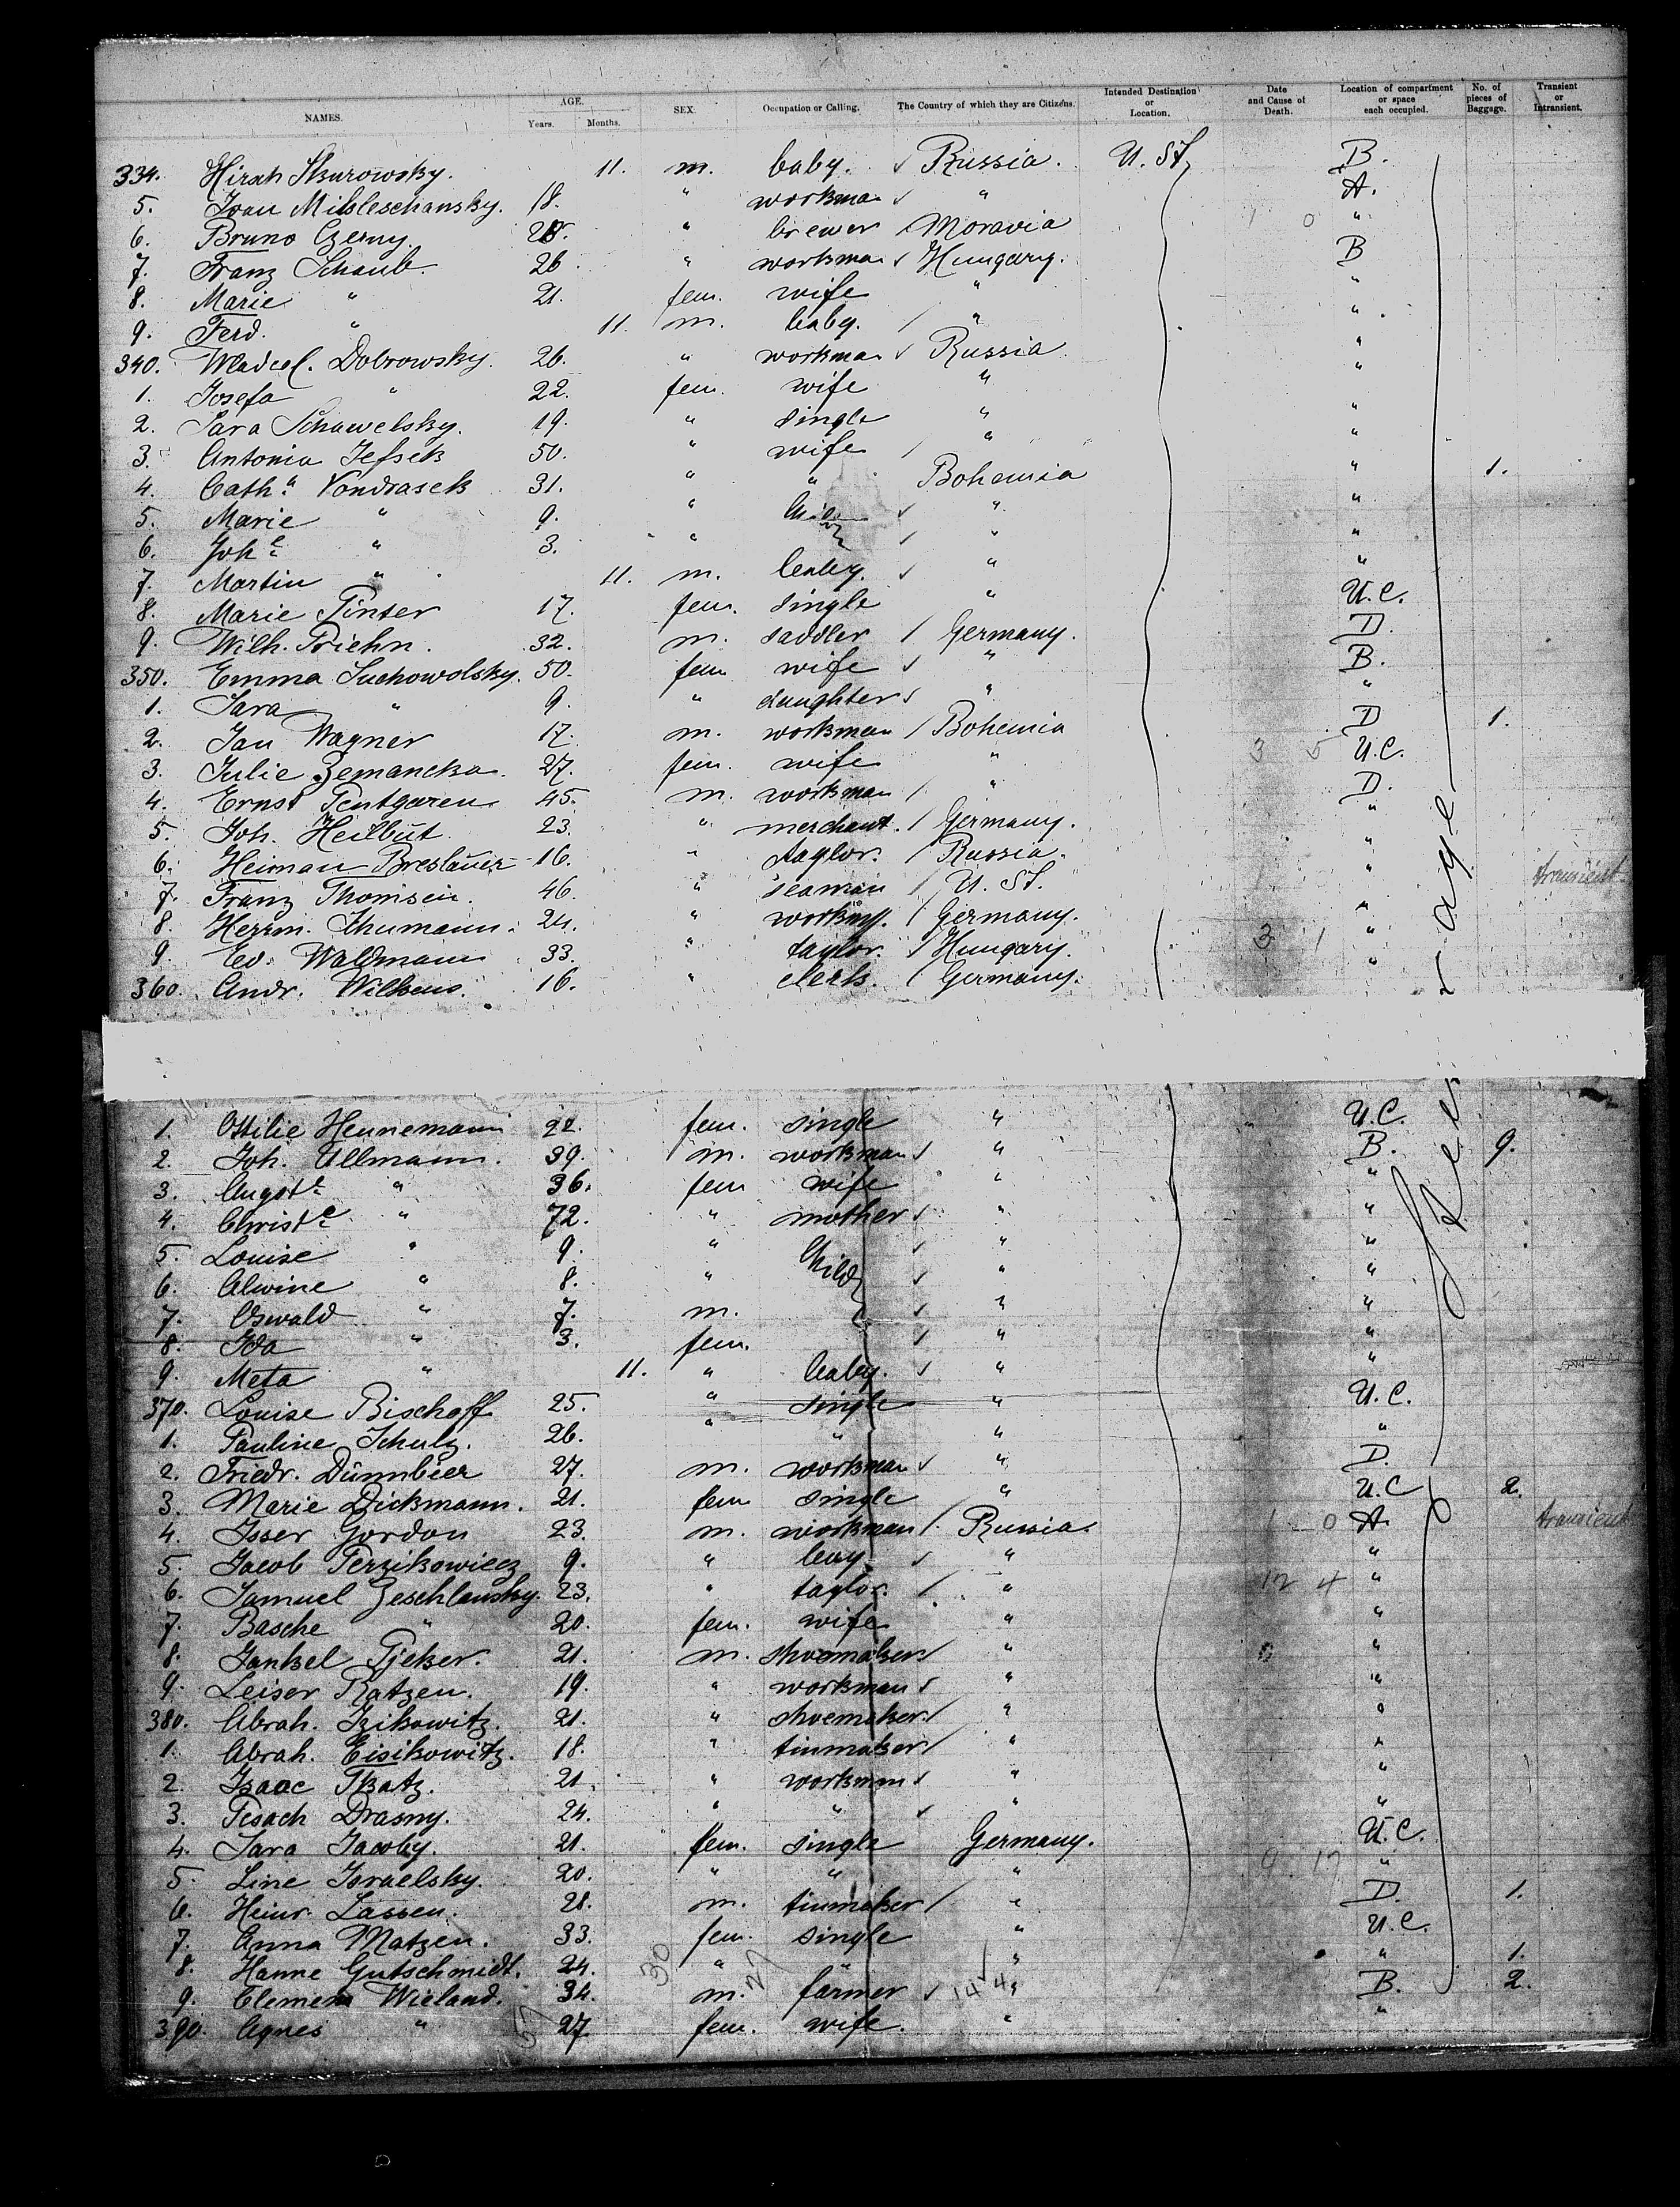 NAMES. AGE. Years. Months. SEX. Occupation or Calling. The Country of which they are Citizens. Intended Destination or Location. Date and Cause of Death. Location of compartment or space each occupied. No. of pieces of Baggage. Transient or Intransient.
334. Hirsch Skurowsky. 11. m. baby. ✓ Russia. U. St. B.
5. Ivan 18. " workman ✓ " A.
6. Bruno Czerny. " brewer / Moravia "
7. Franz Schaub. 26. " workman ✓ Hungary. B
8. Marie " 21. fem. wife " "
9. Ferd. " 11. m. baby. / " "
340. Wladisl. Dobrowsky. 26. " workman ✓ Russia "
1. Josefa " 22. fem. wife " "
2. Sara Schawelsky. 19. " single " "
3. Antonia 50. " wife / " "
4. Cath.a Vondrasek 31. " " Bohemia " 1.
5. Marie " 9. " ✓ " "
6. Joh.e " 3. " ✓ " "
7. Martin " 11. m. baby. ✓ " "
8. Marie Pinter 17. fem. single " U.C.
9. Wilh. Priehn. 32. m. saddler / Germany. D.
350. Emma Suchowolsky. 50. fem wife ✓ " B.
1. Sara " 9. " daughter ✓ " "
2. Jan Wagner 17. m. workman / Bohemia D 1.
3. Julie Zemancka. 27. fem. wife " 3 5 U.C.
4. Ernst Pentgaren 45. m. workman / " D.
5. Joh. Heilbut. 23. " merchant. / Germany. "
6. Heiman Breslauer 16. " taylor. / Russia. "
7. Franz Thomsein. 46. " seaman / U. St. 1 " transient
8. Herrm. Schumann. 24. " workm. / Germany. "
9. Ed. Waldmann 33. " taylor. ✓ Hungary. 3 1 "
360. Andr. Wilkens. 16. " clerk. / Germany. "
1. Ottilie Hennemann 22. fem. single " U.C.
2. Joh. Ullmann. 39. m. workman ✓ " B. 9.
3. Augste " 36. fem wife " "
4. Christe " 72. " mother ✓ " "
5. Louise " 9. " Child ✓ " "
6. Alwine " 8. " ✓ " "
7. Oswald " 7. m. ✓ " "
8. Ida " 3. fem. ✓ " "
9. Meta " 11. " baby. ✓ " "
370. Louise Bischoff 25. " single " U.C.
1. Pauline Schulz. 26. " " " "
2. Friedr. Dünnbier 27. m. workman ✓ " D.
3. Marie Dickmann. 21. fem single " U.C 2.
4. Isser Gordon 23. m. workman /. Russia. 1 0 A. transient
5. Jacob Perzikowicz 9. " boy ✓ " "
6. Samuel Zeschlansky. 23. " taylor. / " 12 4 "
7. Basche " 20. fem. wife " "
8. Jankel Pjeker. 21. m. shoemaker / " "
9. Leiser Ratzen. 19. " workman ✓ " "
380. Abrah. Izikowitz. 21. " shoemaker. / " "
1. Abrah. Eisikowitz. 18. " tinmaker / " "
2. Isaac Tkatz. 21. " workman ✓ " "
3. Pesach Drasny. 24. " " ✓ " "
4. Sara Jacoby. 21. fem. single Germany. U.C.
5. Line Israelsky. 20. " " " 9 17 "
6. Heinr. Lassen. 28. m. tinmaker / " D. 1.
7. Anna Matzen. 33. fem. single " U.C.
8. Hanne Gutschmidt. 24. " " " 1.
9. Clemens Wieland. 34. m. farmer ✓ 14 4 " B. 2.
390. Agnes " 27. fem. wife. " "
57 30 27
Steerage